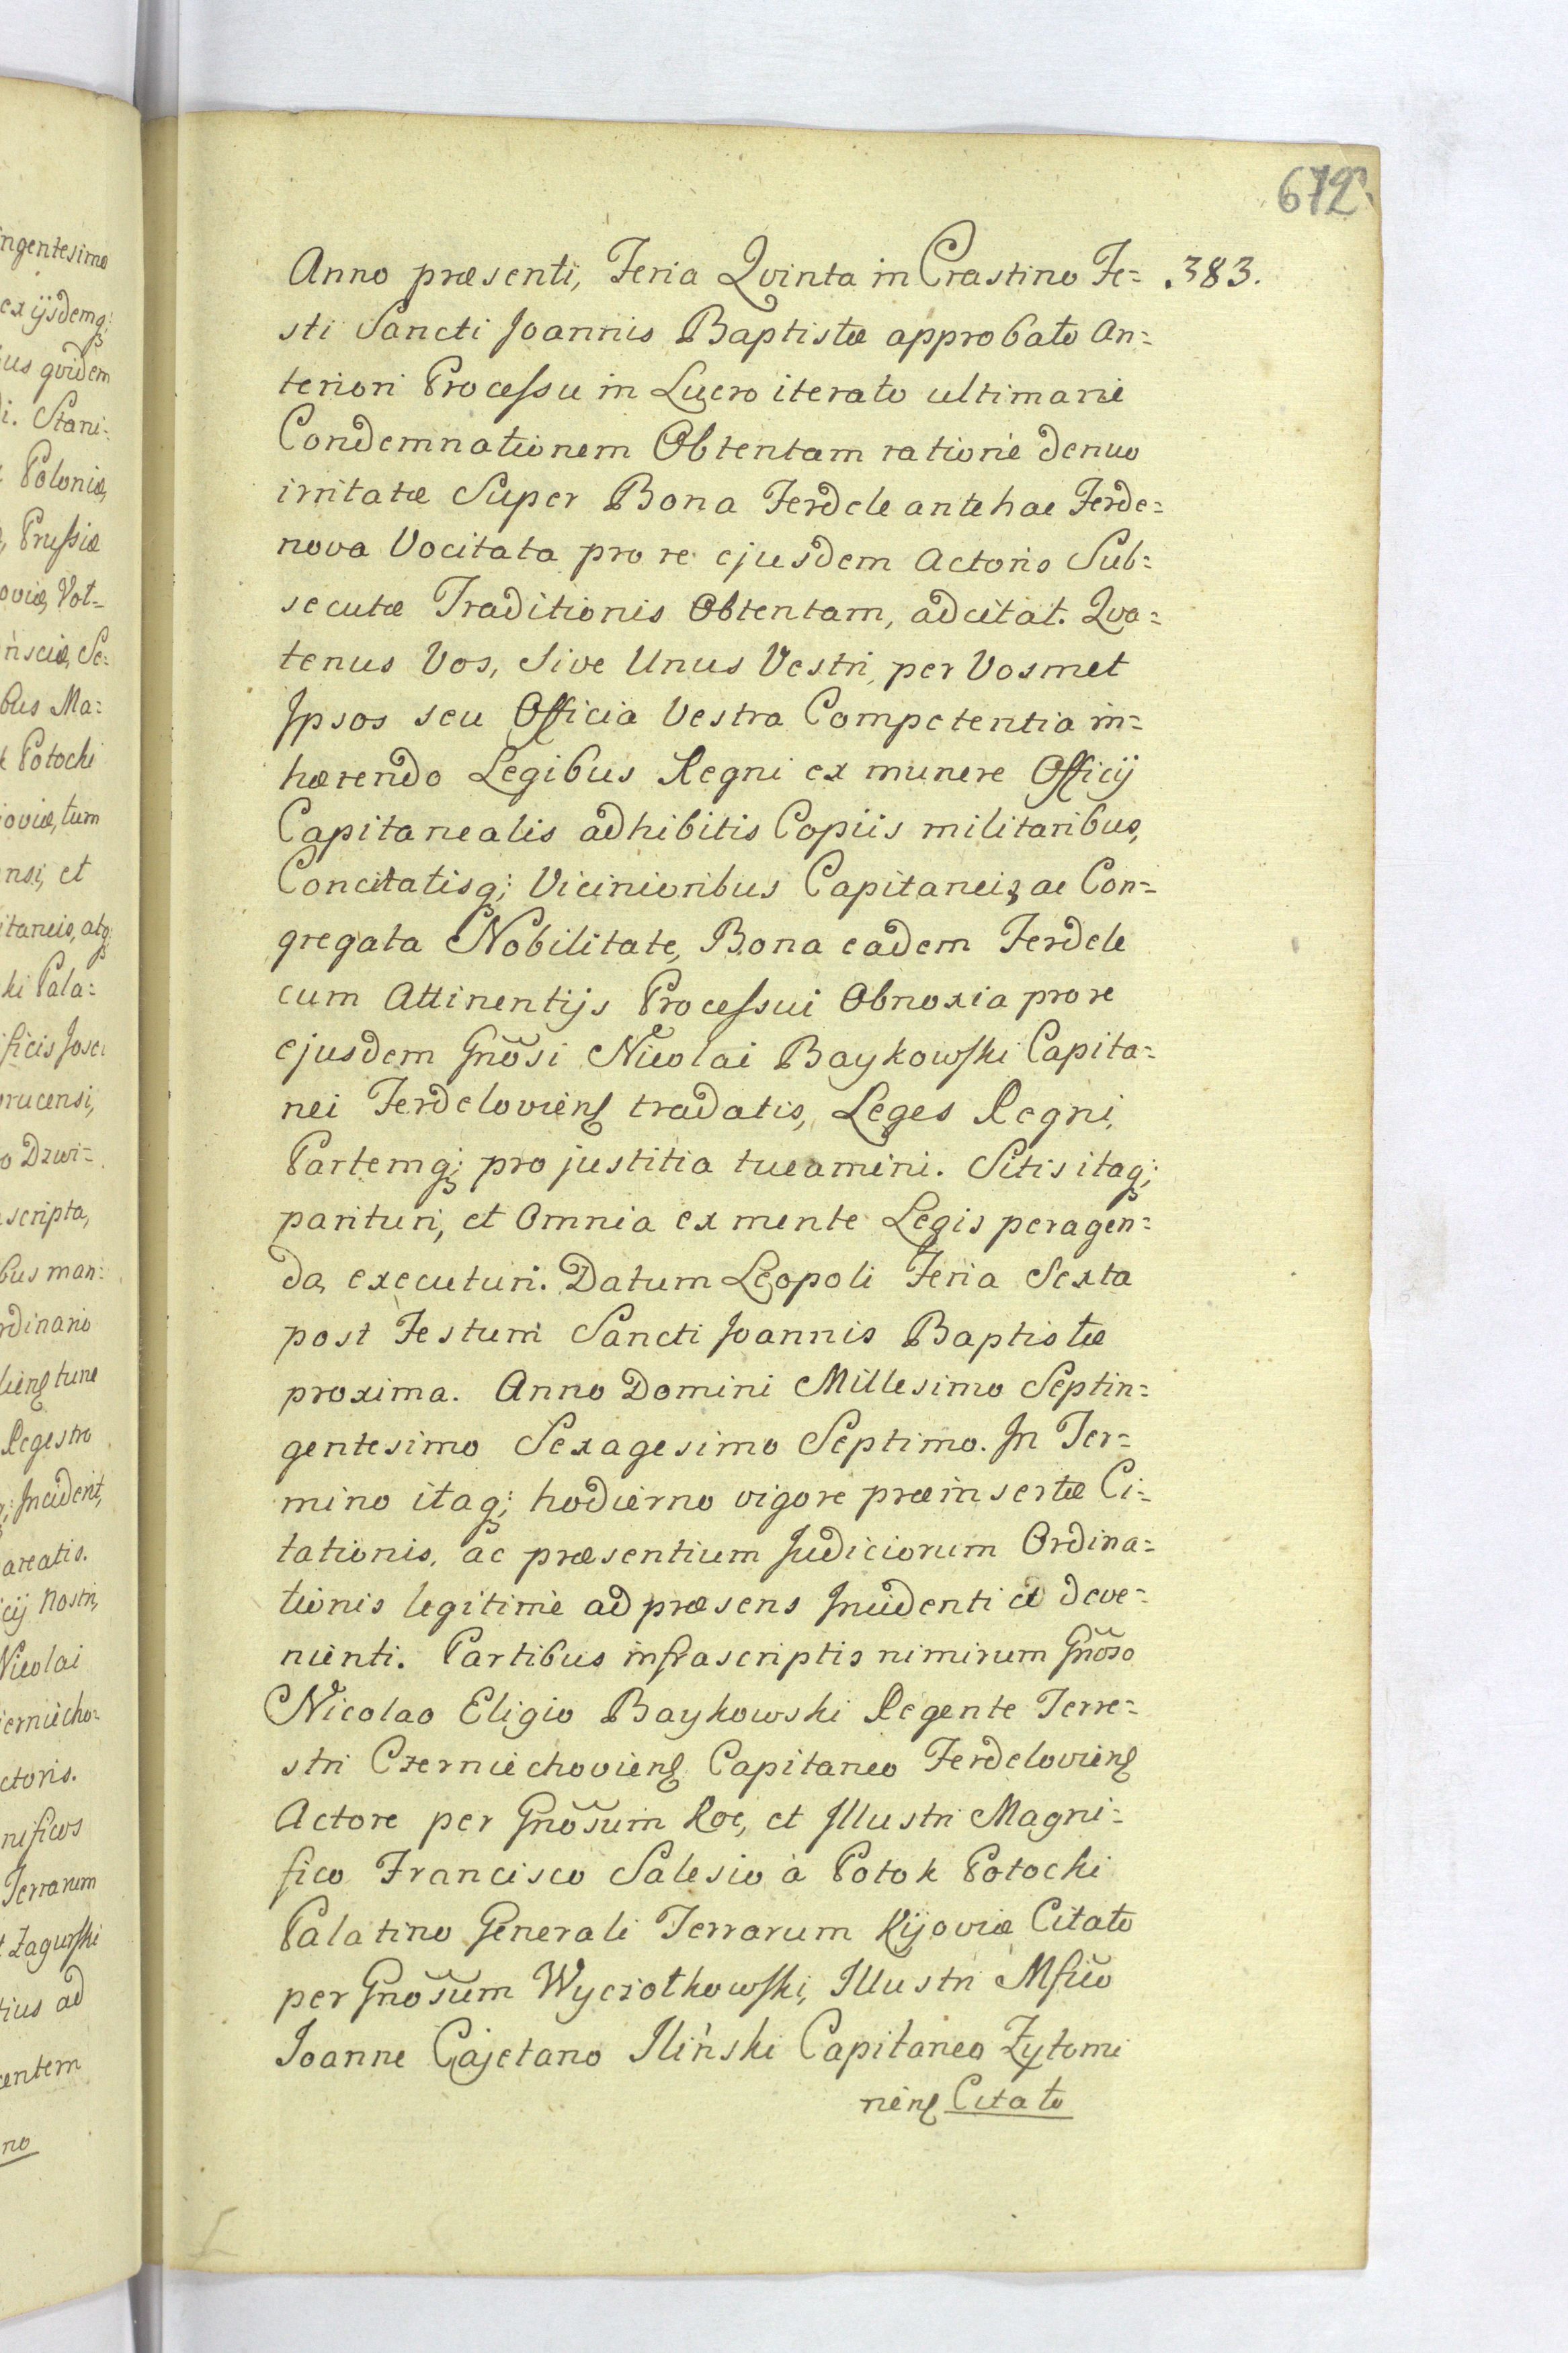 672
383.
Anno præsenti, Feria Qvinta in Crastino Fe=
sti Sancti Joannis Baptistæ approbato An=
teriori Processu in Lucro iterato ultimarie
Condemnationem Obtentam ratione denuo
irritatæ Super Bona Ferdele antehac Ferde=
nova Vocitata pro re ejusdem Actoris Sub=
secutæ Traditionis Obtentam, adcitat. Qva=
tenus Vos, Sive Unus Vestri, per Vosmet
Ipsos seu Officia Vestra Competentia in=
hærendo Legibus Regni ex munere Officij
Capitanealis adhibitis Copiis militaribus,
Concitatisq; Vicinioribus Capitaneis, ac Con=
gregata Nobilitate, Bona eadem Ferdele
cum Attinentijs Processui Obnoxia pro re
ejusdem Gnõsi Nicolai Baykowski Capita=
nei Ferdeloviens tradatis, Leges Regni,
Partemq; pro justitia tueamini. Sitis itaq;
parituri, et Omnia ex mente Legis peragen=
da, executuri. Datum Leopoli Feria Sexta
post Festum Sancti Joannis Baptistæ
proxima. Anno Domini Millesimo Septin=
gentesimo Sexagesimo Septimo. In Ter=
mino itaq; hodierno vigore præinsertæ Ci=
tationis, ac præsentium Judiciorum Ordina=
tionis legitimè ad præsens Incidenti et deve=
nienti. Partibus infrascriptis nimirum Gnõso
Nicolao Eligio Baykowski Regente Terre=
stri Czerniechoviens Capitaneo Ferdeloviens
Actore per Gnõsum Roe, et Illustri Magni=
fico Francisco Salesio à Potok Potocki
Palatino Generali Terrarum Kijoviæ Citato
per Gnõsum Wyczołkowski, Illustri Mfico
Joanne Cajetano Iliński Capitaneo Zytomi
riens Citato